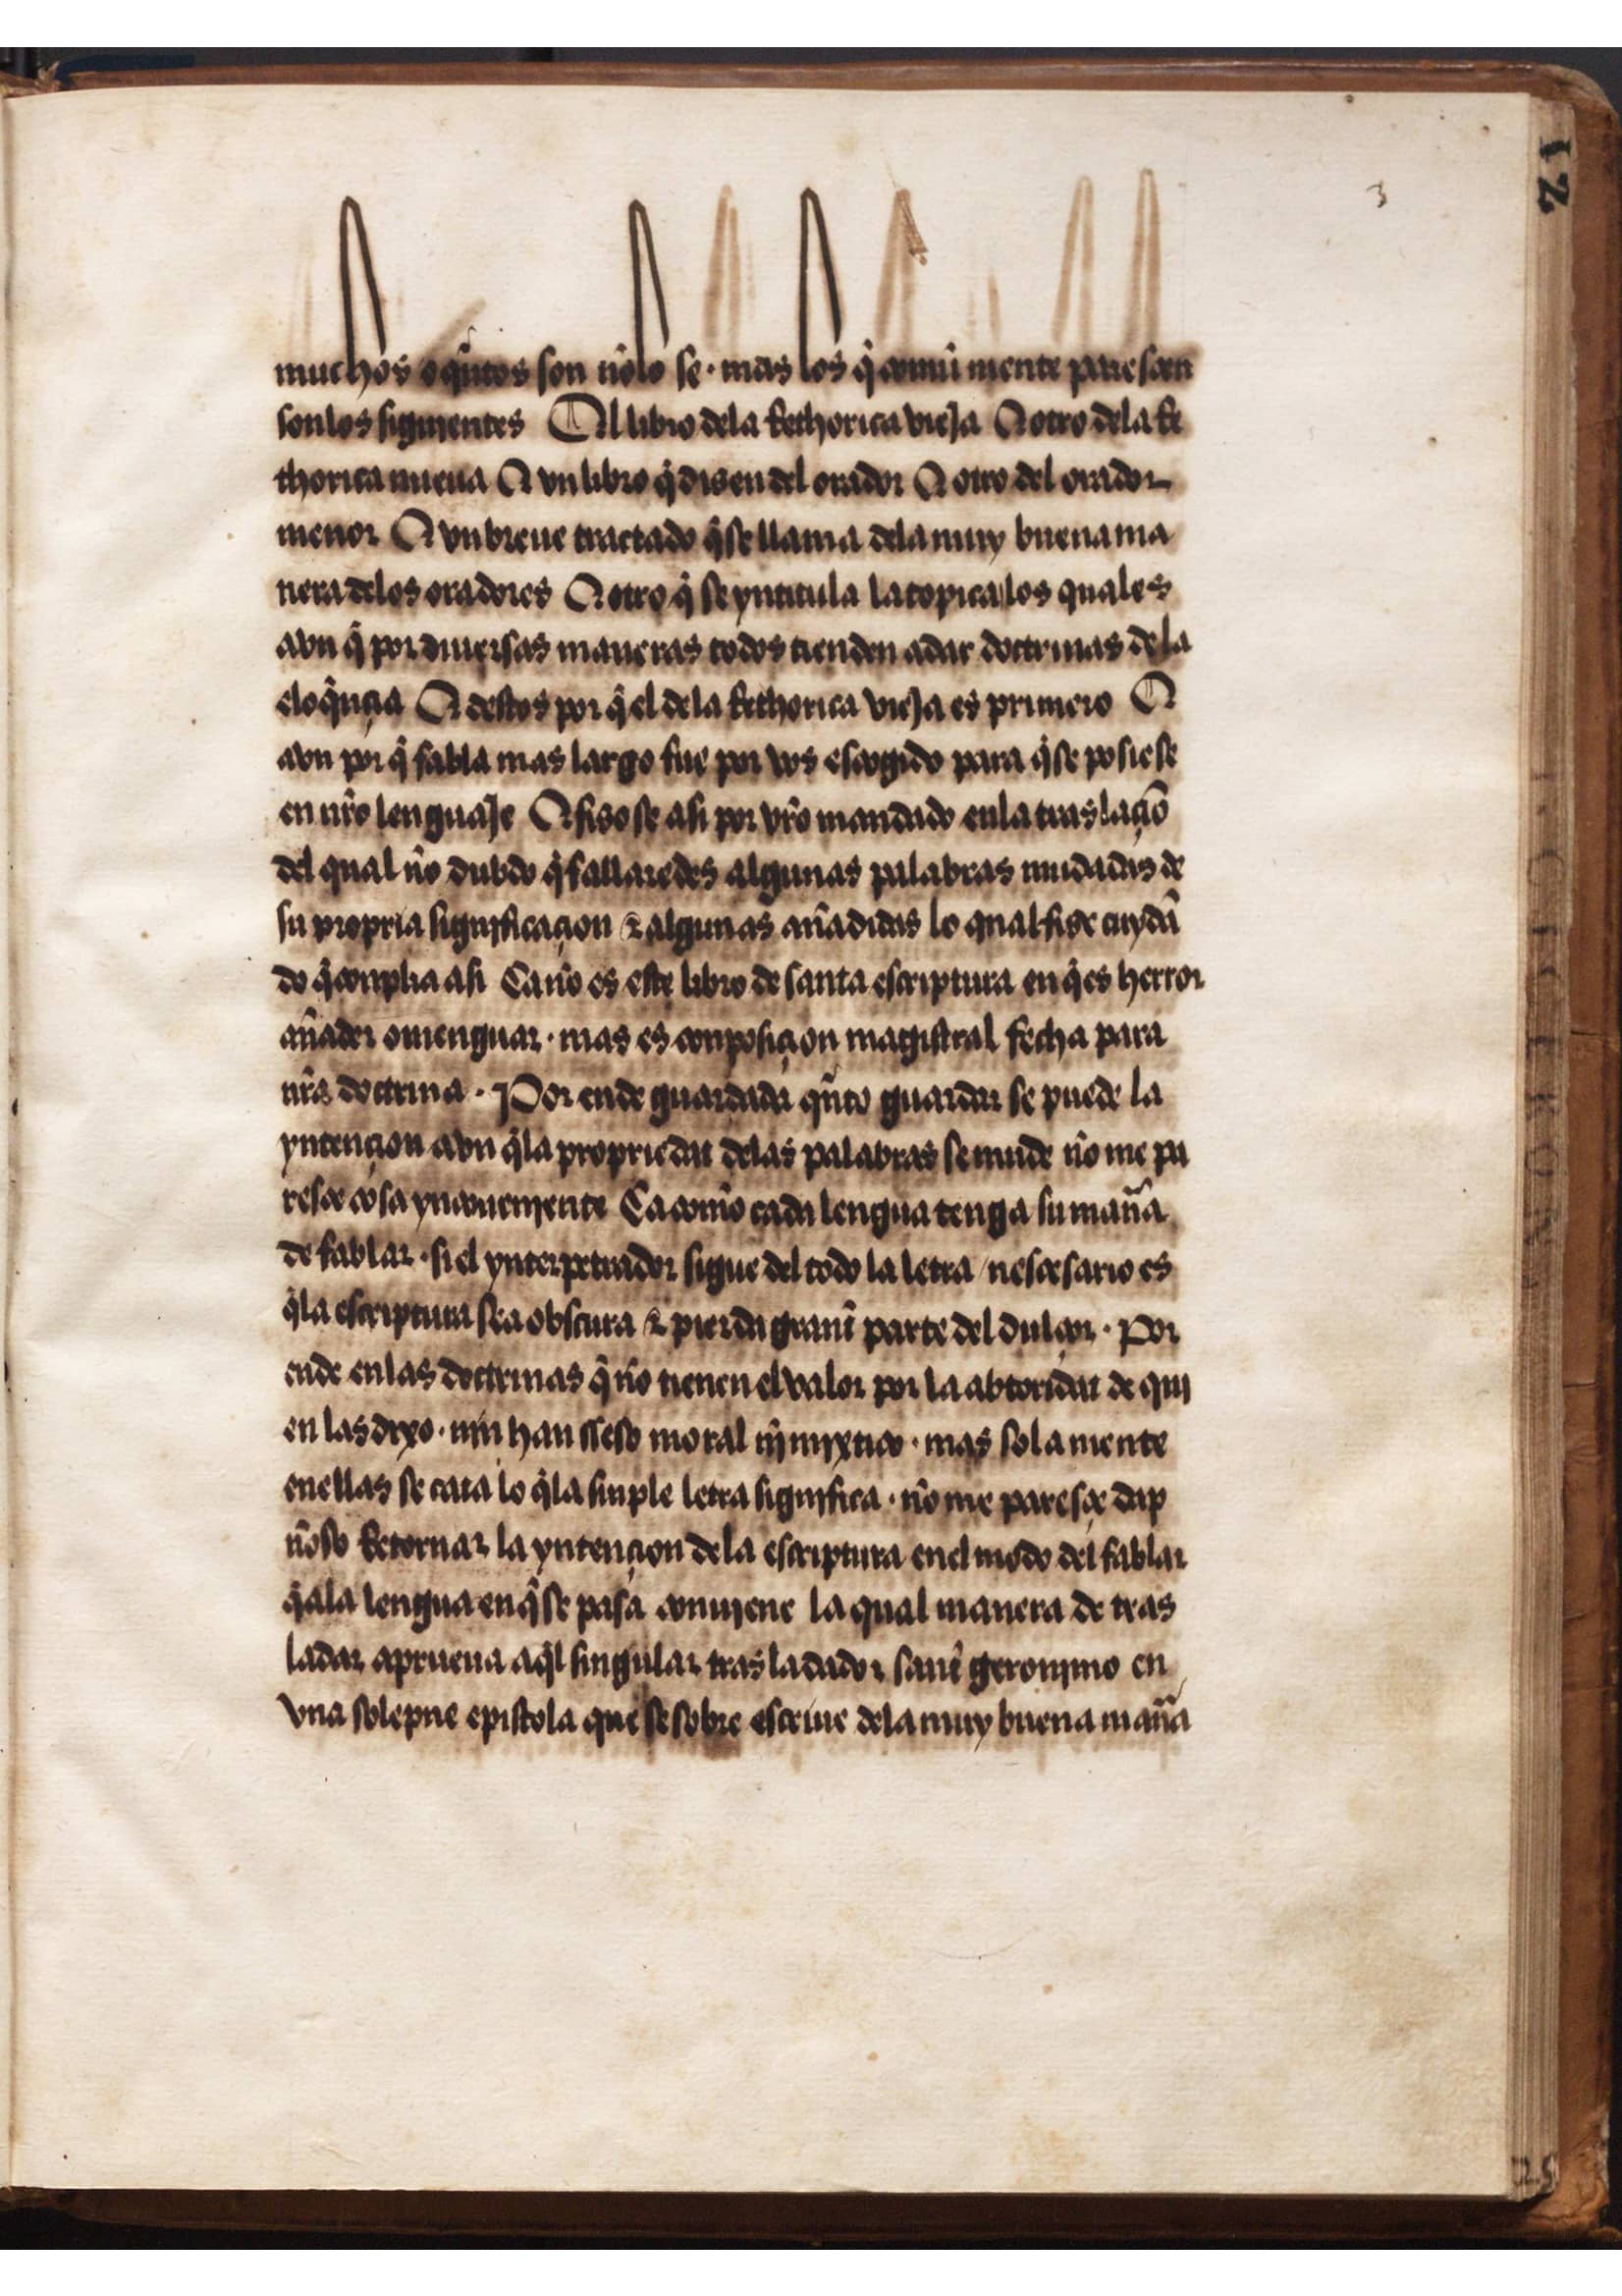 3
12
muchos o q̃ntos son ñolo se · mas los q̃ comũ mente paresçen
son los siguientes El libro dela Rethorica vieja E otro dela Re
thorica nueua E vn libro q̃ disen del orador E otro del orador
menor E vn breue tractado q̃ se llama dela muy buena ma
nera delos oradores E otro q̃ se yntitula la topica los quales
avn q̃ por diuersas maneras todos tienden adar doctrinas de la
eloq̃nçia E destos por q̃ el dela Rethorica vieja es primero E
avn por q̃ fabla mas largo fue por vos escogido para q̃ se posiese
en nr̃o lenguaje E fisose asi por vr̃o mandado enla traslaçiõ
del qual ño dubdo q̃ fallaredes algunas palabras mudadas de
su propria significaçion & algunas añadidas lo qual fise cuydã
do q̃ conplia asi Ca ño es este libro de santa escriptura en q̃ es herror
añader o menguar · mas es conposiçion magistral fecha para
nr̃a doctrina · Por ende guardada q̃nto guardar se puede la
yntençion avn q̃ la propriedat delas palabras se mude ño me pa
resçe cosa ynconueniente Ca com̃o cada lengua tenga su mañ̃a
de fablar · si el ynterpetrador sigue del todo la letra / nesçesario es
q̃ la escriptura sea obscura & pierda grant̃ parte del dulçor · Por
ende en las doctrinas q̃ ño tienen el valor por la abtoridat de qui
en las dixo · nin han sseso moral nĩ mixtico · mas sola mente
en ellas se cata lo q̃ la sinple letra significa · ño me paresçe dap
ñoso Retornar la yntençion dela escriptura enel modo del fablar
q̃ ala lengua en q̃ se pasa conuiene la qual manera de tras
ladar aprueua aq̃l singular trasladador sant̃ geronimo en
vna solepne epistola que se sobre escriue dela muy buena mañ̃a